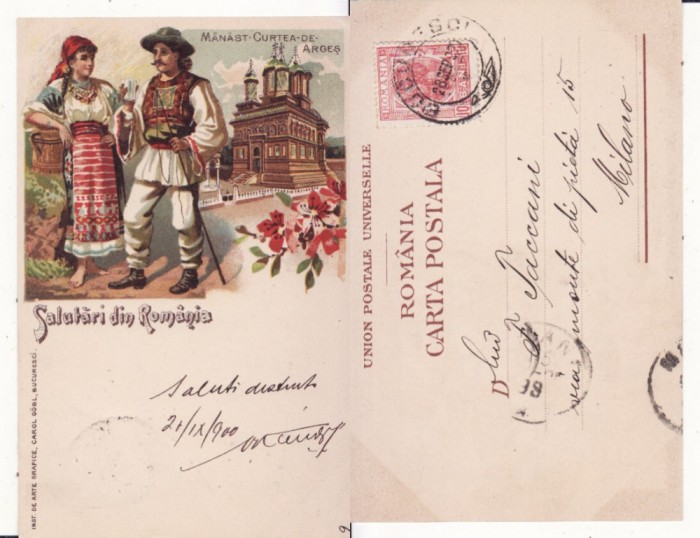 MÂNĂST-CURTEA-DE-
ARGEȘ
Salutări din România
Saluti distinti
IX/900
INST. DE ARTE GRAFICE, CAROL GÖBL, BUCURESCI.
ROMANIA
10
UNION POSTALE UNIVERSELLE
ROMÂNIA
CARTA POSTALA
D lui
Taccani
via monte di pietà 15
Milano